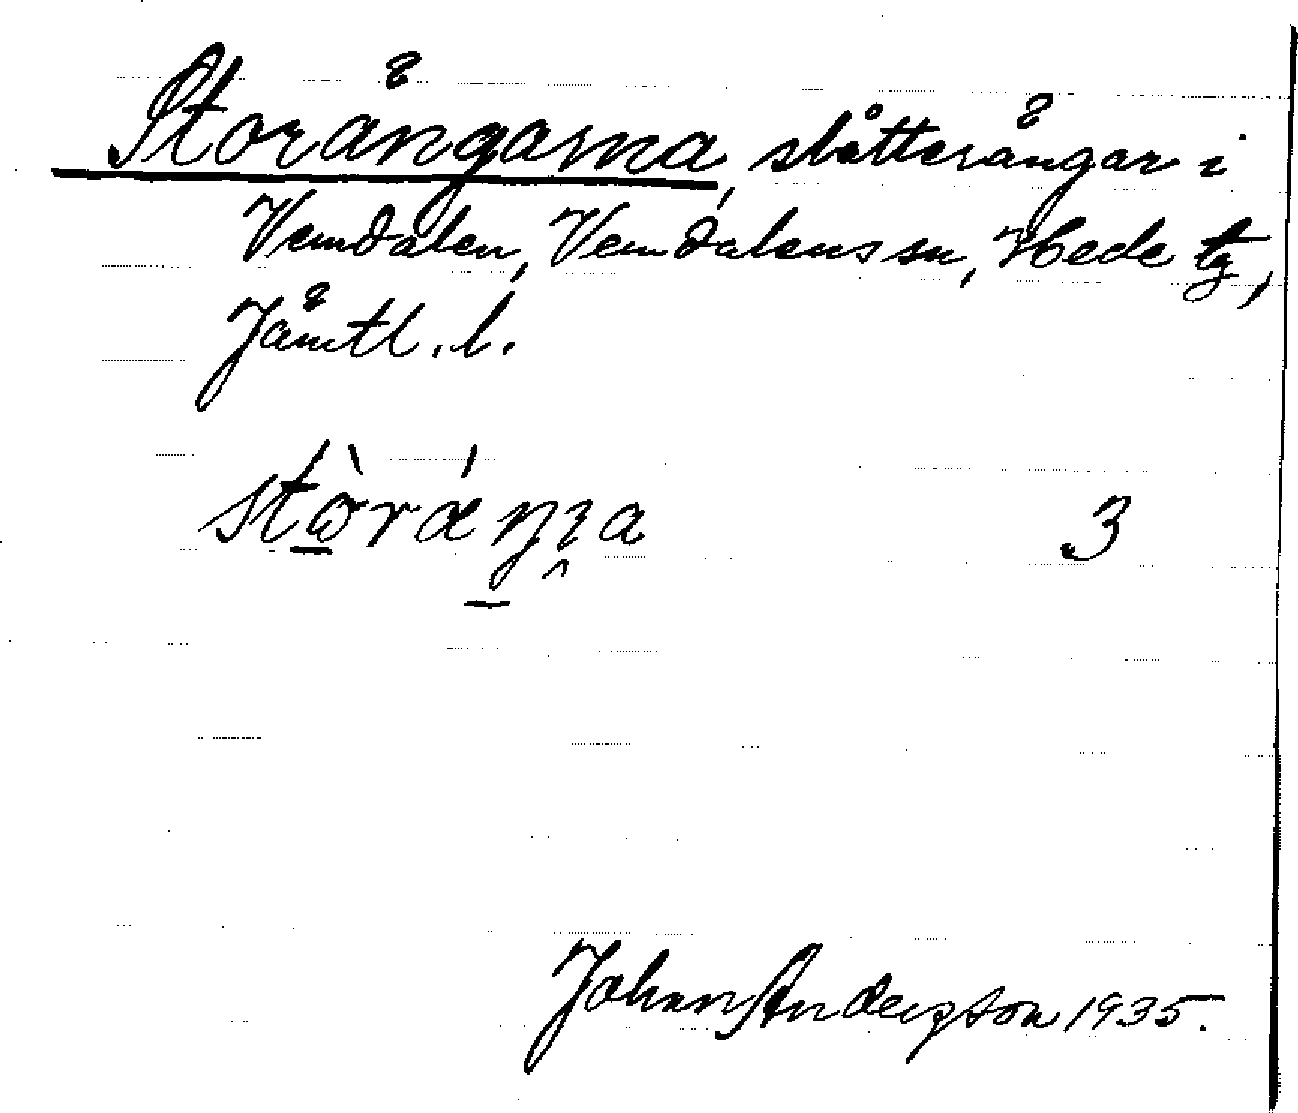 Storängarna, slåtterängar i
Vemdalen, Vemdalens sn, Hede tg,
Jämtl. l.
3
Johan Andersson 1935.